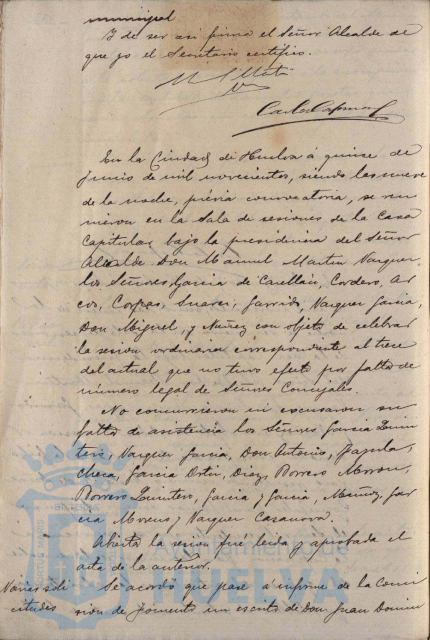 municipal
Y de ser así firma el Señor Alcalde de
que yo el Secretario certifico.
En la Ciudad de Huelva á quince de
junio de mil novecientos, siendo las nueve
de la noche, prévia convocatoria, se reu
nieron en la Sala de sesiones de la Casa
Capitular, bajo la presidencia del Señor
Alcalde Don Manuel Martin Vazquez
los Señores, Garcia de Cordero, Ar
cos, Suarez, Garrido, Vazquez Garcia,
Don Miguel, y Nuñez con objeto de celebrar
la sesion ordinaria correspondiente al trece
del actual que no tuvo efecto por falta de
número legal de Señores Concejales.
No concurrieron ni escusaron su
falta de asistencia los Señores Garcia Quin
tero, Vazquez Garcia, Don Antonio,
Checa, Garcia Ortiz, Diaz, Borrero Moron,
Borrero Quintero, Garcia y Garcia, Muñoz, Gar
cia Moreno y Vazquez Casanova.
Abierta la sesion fué leida y aprobada el
acta de la anterior.
Varias soli
citudes
Se acordó que pase á informe de la Comi
sion de Fomento un escrito de Don Juan Domin
Ayuntamiento de
HUELVA